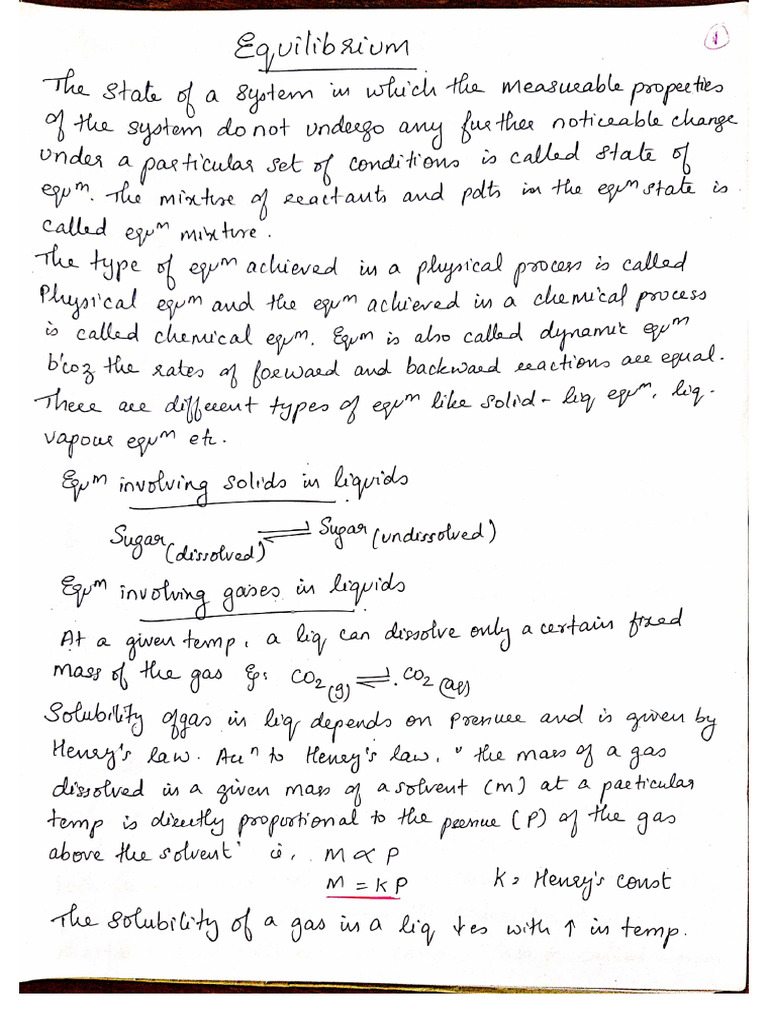 Equilibrium
1
The state of a system in which the measurable properties
of the system do not undergo any further noticeable change
under a particular set of conditions is called state of
equm. The mixture of reactants and pdts in the equm state is
called equm mixture.
The type of equm achieved in a physical process is called
Physical equm and the equm achieved in a chemical process
is called chemical equm. Equm is also called dynamic equm
b'coz the rates of forward and backward reactions are equal.
There are different types of equm like solid - liq equm, liq-
vapour equm etc.
Equm involving solids in liquids
Sugar (dissolved) ⇌ Sugar (undissolved)
Equm involving gases in liquids
At a given temp, a liq can dissolve only a certain fixed
mass of the gas Eg: CO2 (g) ⇌ CO2 (aq)
Solubility of gas in liq depends on pressure and is given by
Henry's law. Accn to Henry's law, " the mass of a gas
dissolved in a given mass of a solvent (m) at a particular
temp is directly proportional to the pressure (P) of the gas
above the solvent" ie, M ∝ P
M = KP K → Henry's const
The solubility of a gas in a liq ↓es with ↑ in temp.